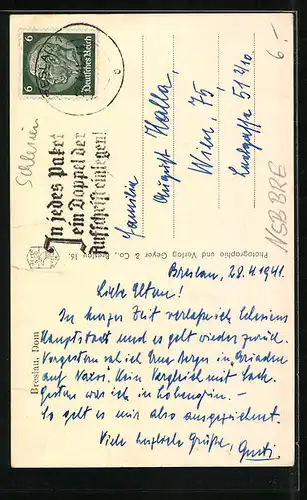 Breslau, 28.4.1941.
Liebe Eltern!
In kurzer Zeit verlasse ich Schlesiens
Hauptstadt und es geht wieder zurück.
Vorgestern sah ich in "Ariadne
auf Naxos". Kein Vergleich mit
Gestern war ich in Lohengrin. -
So geht es mir also ausgezeichnet.
Viele herzliche Grüße, Gusti.
Breslau, Dom
Photographie und Verlag Geyer & Co., Breslau 16.
Schlesien
In jedes Paket
ein Doppel der
Aufschrift einlegen!
6 Deutsches Reich 6
Familie
August Halla,
Wien, 75,
51/10.
6.-